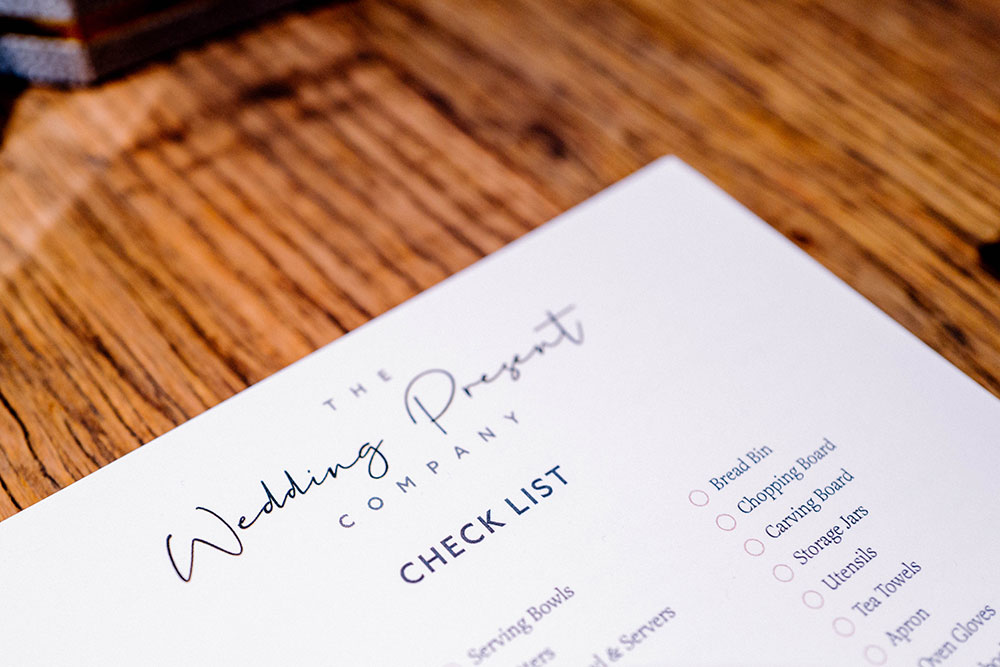 THE
Wedding Present
COMPANY
CHECK LIST
Serving Bowls
& Servers
Bread Bin
Chopping Board
Carving Board
Storage Jars
Utensils
Tea Towels
Apron
Oven Gloves